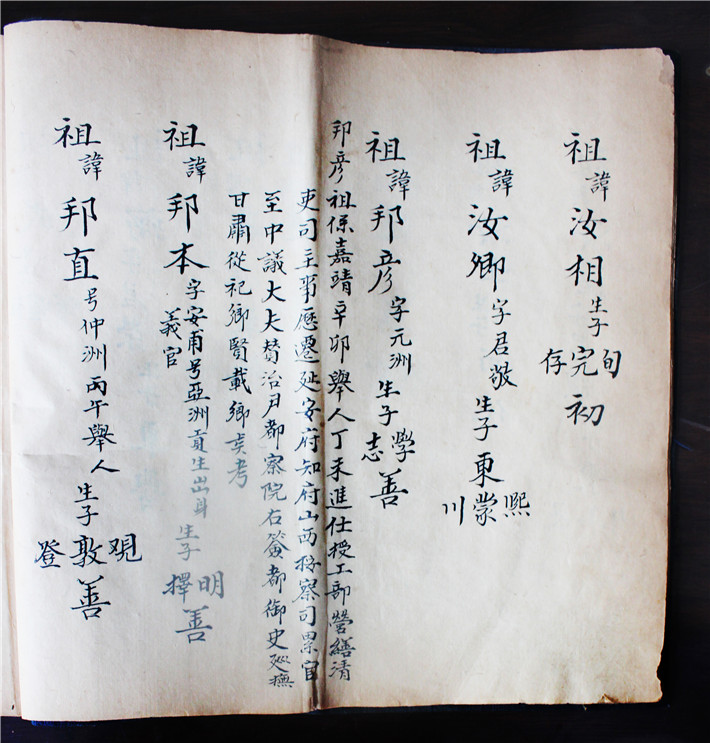 祖諱汝相生子旬完存初
祖諱汝卿字君敬生子東熙蒙川
祖諱邦彦字元洲生子學志善
邦彦祖係嘉靖辛卯舉人丁未進仕授工部營繕清
吏司主事歷遷延安府知府山西按察司累官
至中議大夫賛治尹都察院右僉都御史廵撫
甘肅從祀鄉賢載鄉賁考
祖諱邦本字安甫号亞洲貢生出身義官生子明擇善
祖諱邦直号仲洲丙午舉人生子观敦登善